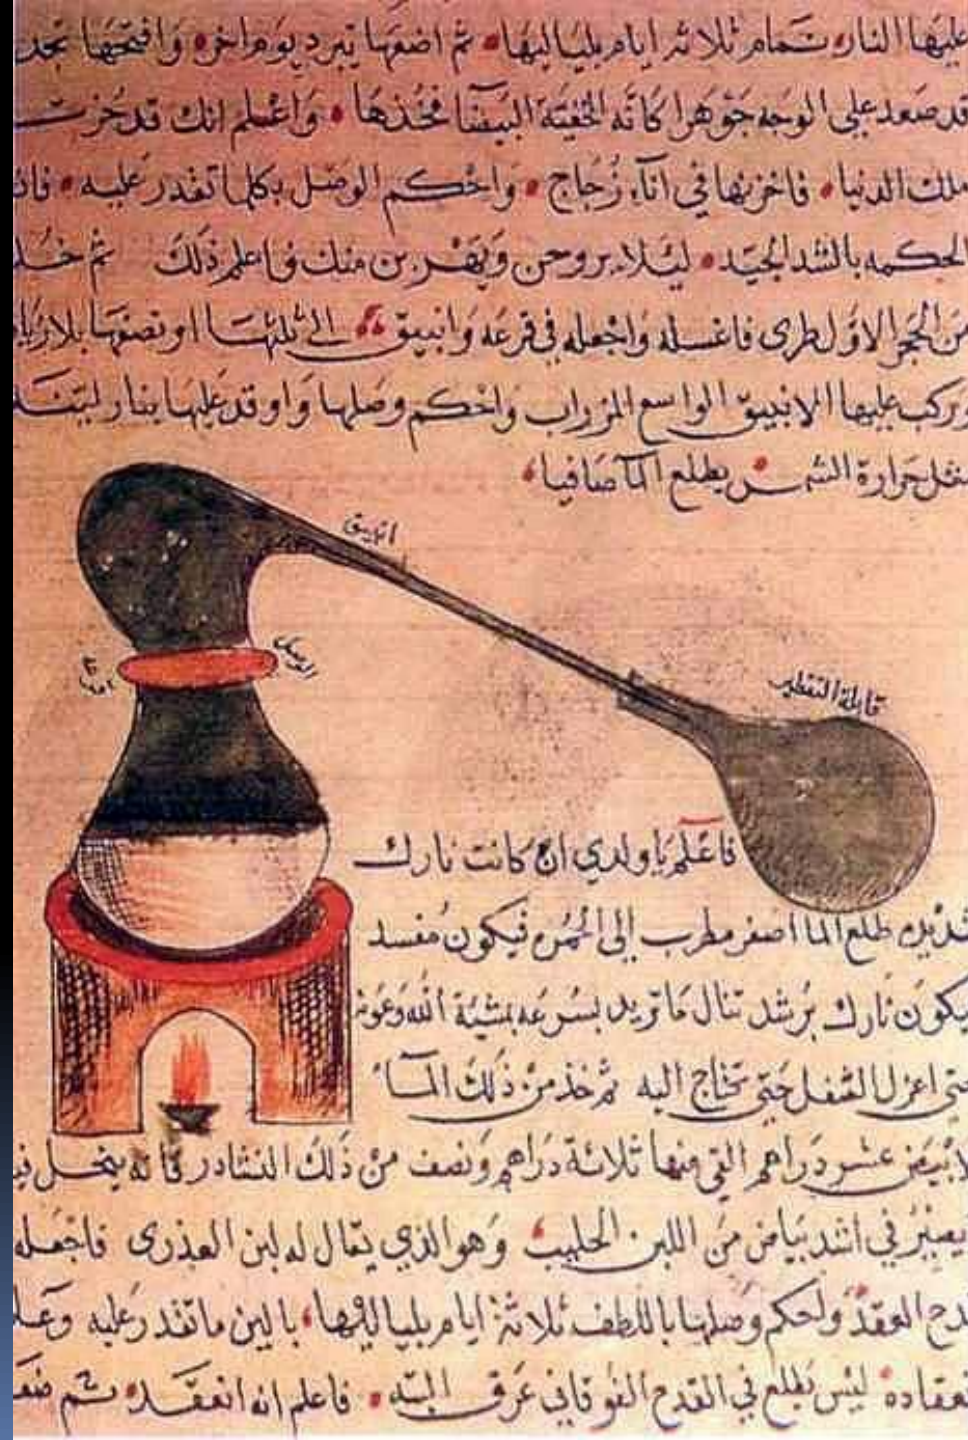 عليها النار تمام ثلاثة ايام بلياليها ثم اضعها تبرد يوم اخر وافتحها تجد
قد صعد على الوجه جوهرا كانه الخفيّة البيضا فخذها واعلم انك قد حُزت
ملك الدنيا فاخزنها في اناء زُجاج واحكم الوصل بكلما تقدر عليه فان
الحكمه بالشد الجيّد ليئلا يروحن ويهربن منك فاعلم ذلك ثم خذ
من الحجر الاول طرى فاغسله واجعله في قرعه وانبيق الى ثلثها او نصفها بلا زياد
وركب عليها الانبيق الواسع المزراب واحكم وصلها واوقد عليها بنار لينـ
مثل حرارة الشمس يطلع المآ صافيا
انبيق
الوصل
قابلة التقطير
فاعلم يا ولدي ان كانت نارك
شديده طلع الما اصفر مطرب الى الحمره فيكون مفسد
يكون نارك برشد تنال ما تريد بسرعه بمشيّة الله وعونه
حتى اعزل الثفل حتى تحتاج اليه ثم خذ من ذلك المآء
لابيض عشر دراهم القي فيها ثلاثة دراهم ونصف من ذلك النشادر فانه ينحل فيـ
يصير في اشد بياض من اللبن الحليب وهو الذي يقال له لبن العذرى فاجعله
قدح العقد ولحكم وصلها باللطف ثلاثة ايام بلياليها بالين ما تقدر عليه وعلـ
نعقاده ليس يطلع في القدح الفوقاني عرق البته فاعلم انه انعقد ثم ضعـ